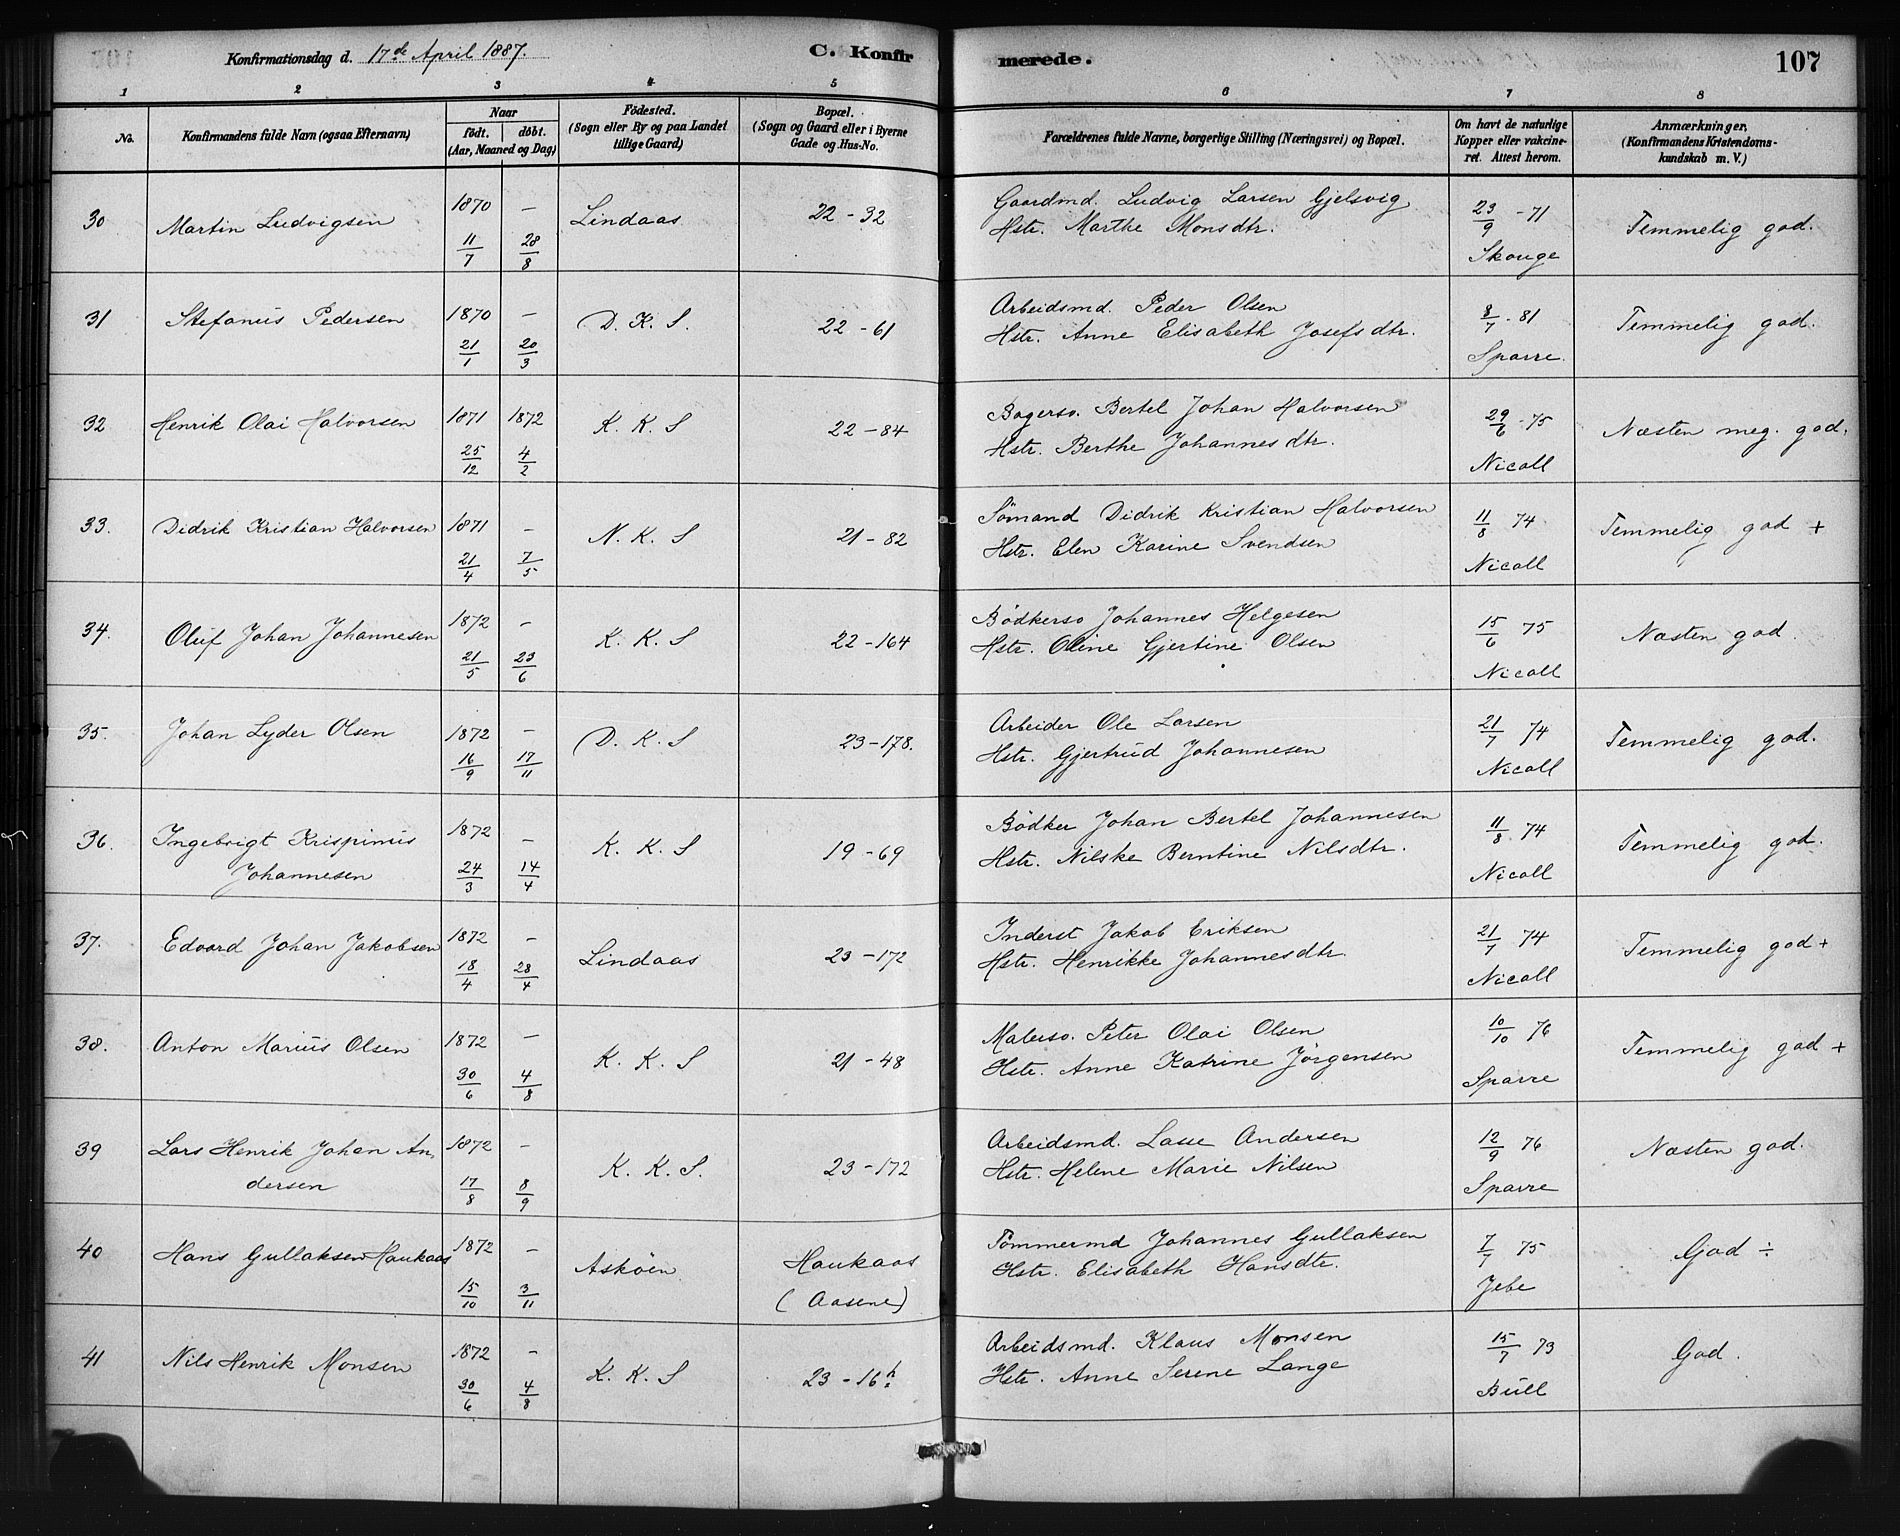 Konfirmationsdag d. 17de April 1887. C. Konfirmerede. 107
1 2 3 4 5 6 7 8
No. Konfirmandens fulde Navn (ogsaa Efternavn) Naar födt. döbt. (Aar, Maaned og Dag) Födested. (Sogn eller By og paa Landet tillige Gaard) Bopæl. (Sogn og Gaard eller i Byerne Gade og Hus-No. Forældrenes fulde Navne, borgerlige Stilling (Næringsvei) og Bopæl. Om havt de naturlige Kopper eller vakcineret. Attest herom. Anmærkninger. (Konfirmandens Kristendomskundskab m. V.)
30 Martin Ludvigsen 1870 11/7 – 28/8 Lindaas 22 - 32 Gaardmd. Ludvig Larsen Gjelsvig 23/9 - 71 Temmelig god.
Hstr. Marthe Monsdtr. Skouge
31 Stefanus Pedersen 1870 21/1 – 20/3 D. K. S. 22 - 61 Arbeidsmd. Peder Olsen 8/7 - 81 Temmelig god.
Hstr. Anne Elisabeth Josefsdtr. Sparre.
32 Henrik Olai Halvorsen 1871 25/12 1872 4/2 K. K. S 22 - 84 Bagersv. Bertel Johan Halvorsen 29/6 - 75 Næsten meg. god.
Hstr. Berthe Johannesdtr. Nicoll
33. Didrik Kristian Halvorsen 1871 21/4 – 7/5 N. K. S 21 - 82 Sömand Didrik Kristian Halvorsen 11/8 74 Temmelig god +
Hstr. Elen Karine Svendsen Nicoll
34. Oluf Johan Johannesen 1872 21/5 – 23/6 K. K. S 22 - 164 Bödkersv Johannes Helgesen 15/6 75 Næsten god.
Hstr. Oline Gjertine Olsen Nicoll
35. Johan Lyder Olsen 1872 16/9 – 17/11 D. K. S 23 - 178. Arbeider Ole Larsen 21/7 74 Temmelig god.
Hstr. Gjertrud Johannesen Nicoll
36. Ingebrigt Krispinus 1872 24/3 – 14/4 K. K. S 19 - 69 Bödker Johan Bertel Johannesen 11/8 74 Temmelig god.
Johannesen Hstr. Nilske Berntine Nilsdtr. Nicoll
37. Edvard Johan Jakobsen 1872 18/4 – 28/4 Lindaas 23 - 172 Inderst Jakob Eriksen 21/7 74 Temmelig god +
Hstr. Henrikke Johannesdtr. Nicoll
38. Anton Marius Olsen 1872 30/6 – 4/8 K. K. S 21 - 48 Malersv. Peter Olai Olsen 10/10 76 Temmelig god +
Hstr. Anne Katrine Jörgensen Sparre
39 Lars Henrik Johan An- 1872 17/8 – 8/9 K. K. S. 23 - 172 Arbeidsmd. Lasse Andersen 12/9 76 Næsten god.
dersen Hstr. Helene Marie Nilsen Sparre
40 Hans Gullaksen Haukaas 1872 15/10 – 3/11 Asköen Haukaas Tömmermd Johannes Gullaksen 7/7 75 God ÷
(Aasene) Hstr. Elisabeth Hansdtr. Jebe
41 Nils Henrik Monsen 1872 30/6 – 4/8 K. K. S 23 - 16 h Arbeidsmd. Klaus Monsen 15/7 73 God.
Hstr. Anne Serene Lange Büll